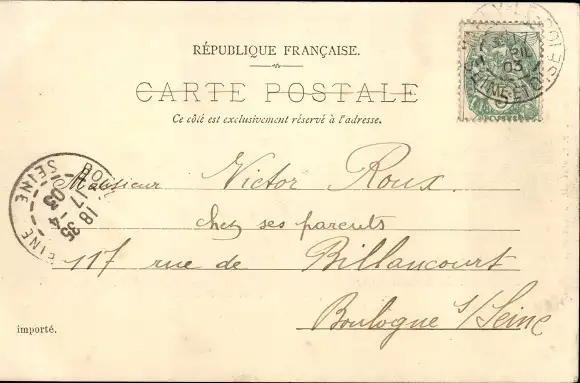 RÉPUBLIQUE FRANÇAISE.
CARTE POSTALE
Ce côté est exclusivement réservé à l'adresse.
Monsieur Victor Roux.
chez ses parents
117 rue de Billancourt
Boulogne s/Seine
importé.
BOUL
18 35
17 - 4
03
SEINE
SEINE ET OISE
03